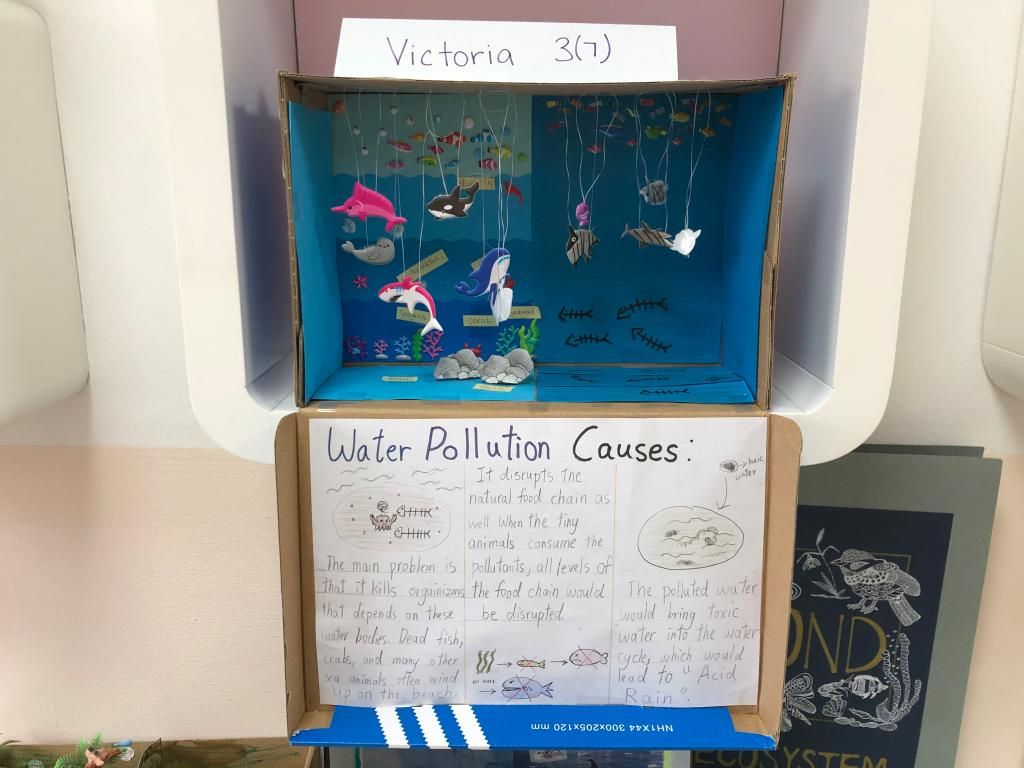 Victoria 3(7)
Seaweed
Coral
Water Pollution Causes:
The main problem is
that it kills orgainizms
that depends on these
water bodies. Dead fish,
crabs, and many other
sea animals often wind
up on the beach.
It disrupts the
natural food chain as
well. When the tiny
animals consume the
pollutants, all levels of
the food chain would
be disrupted.
toxic
water
The polluted water
would bring toxic
water into the water
cycle, which would
lead to "Acid
Rain".
NH1X44 300x205x120 mm
OND
ECOSYSTEM